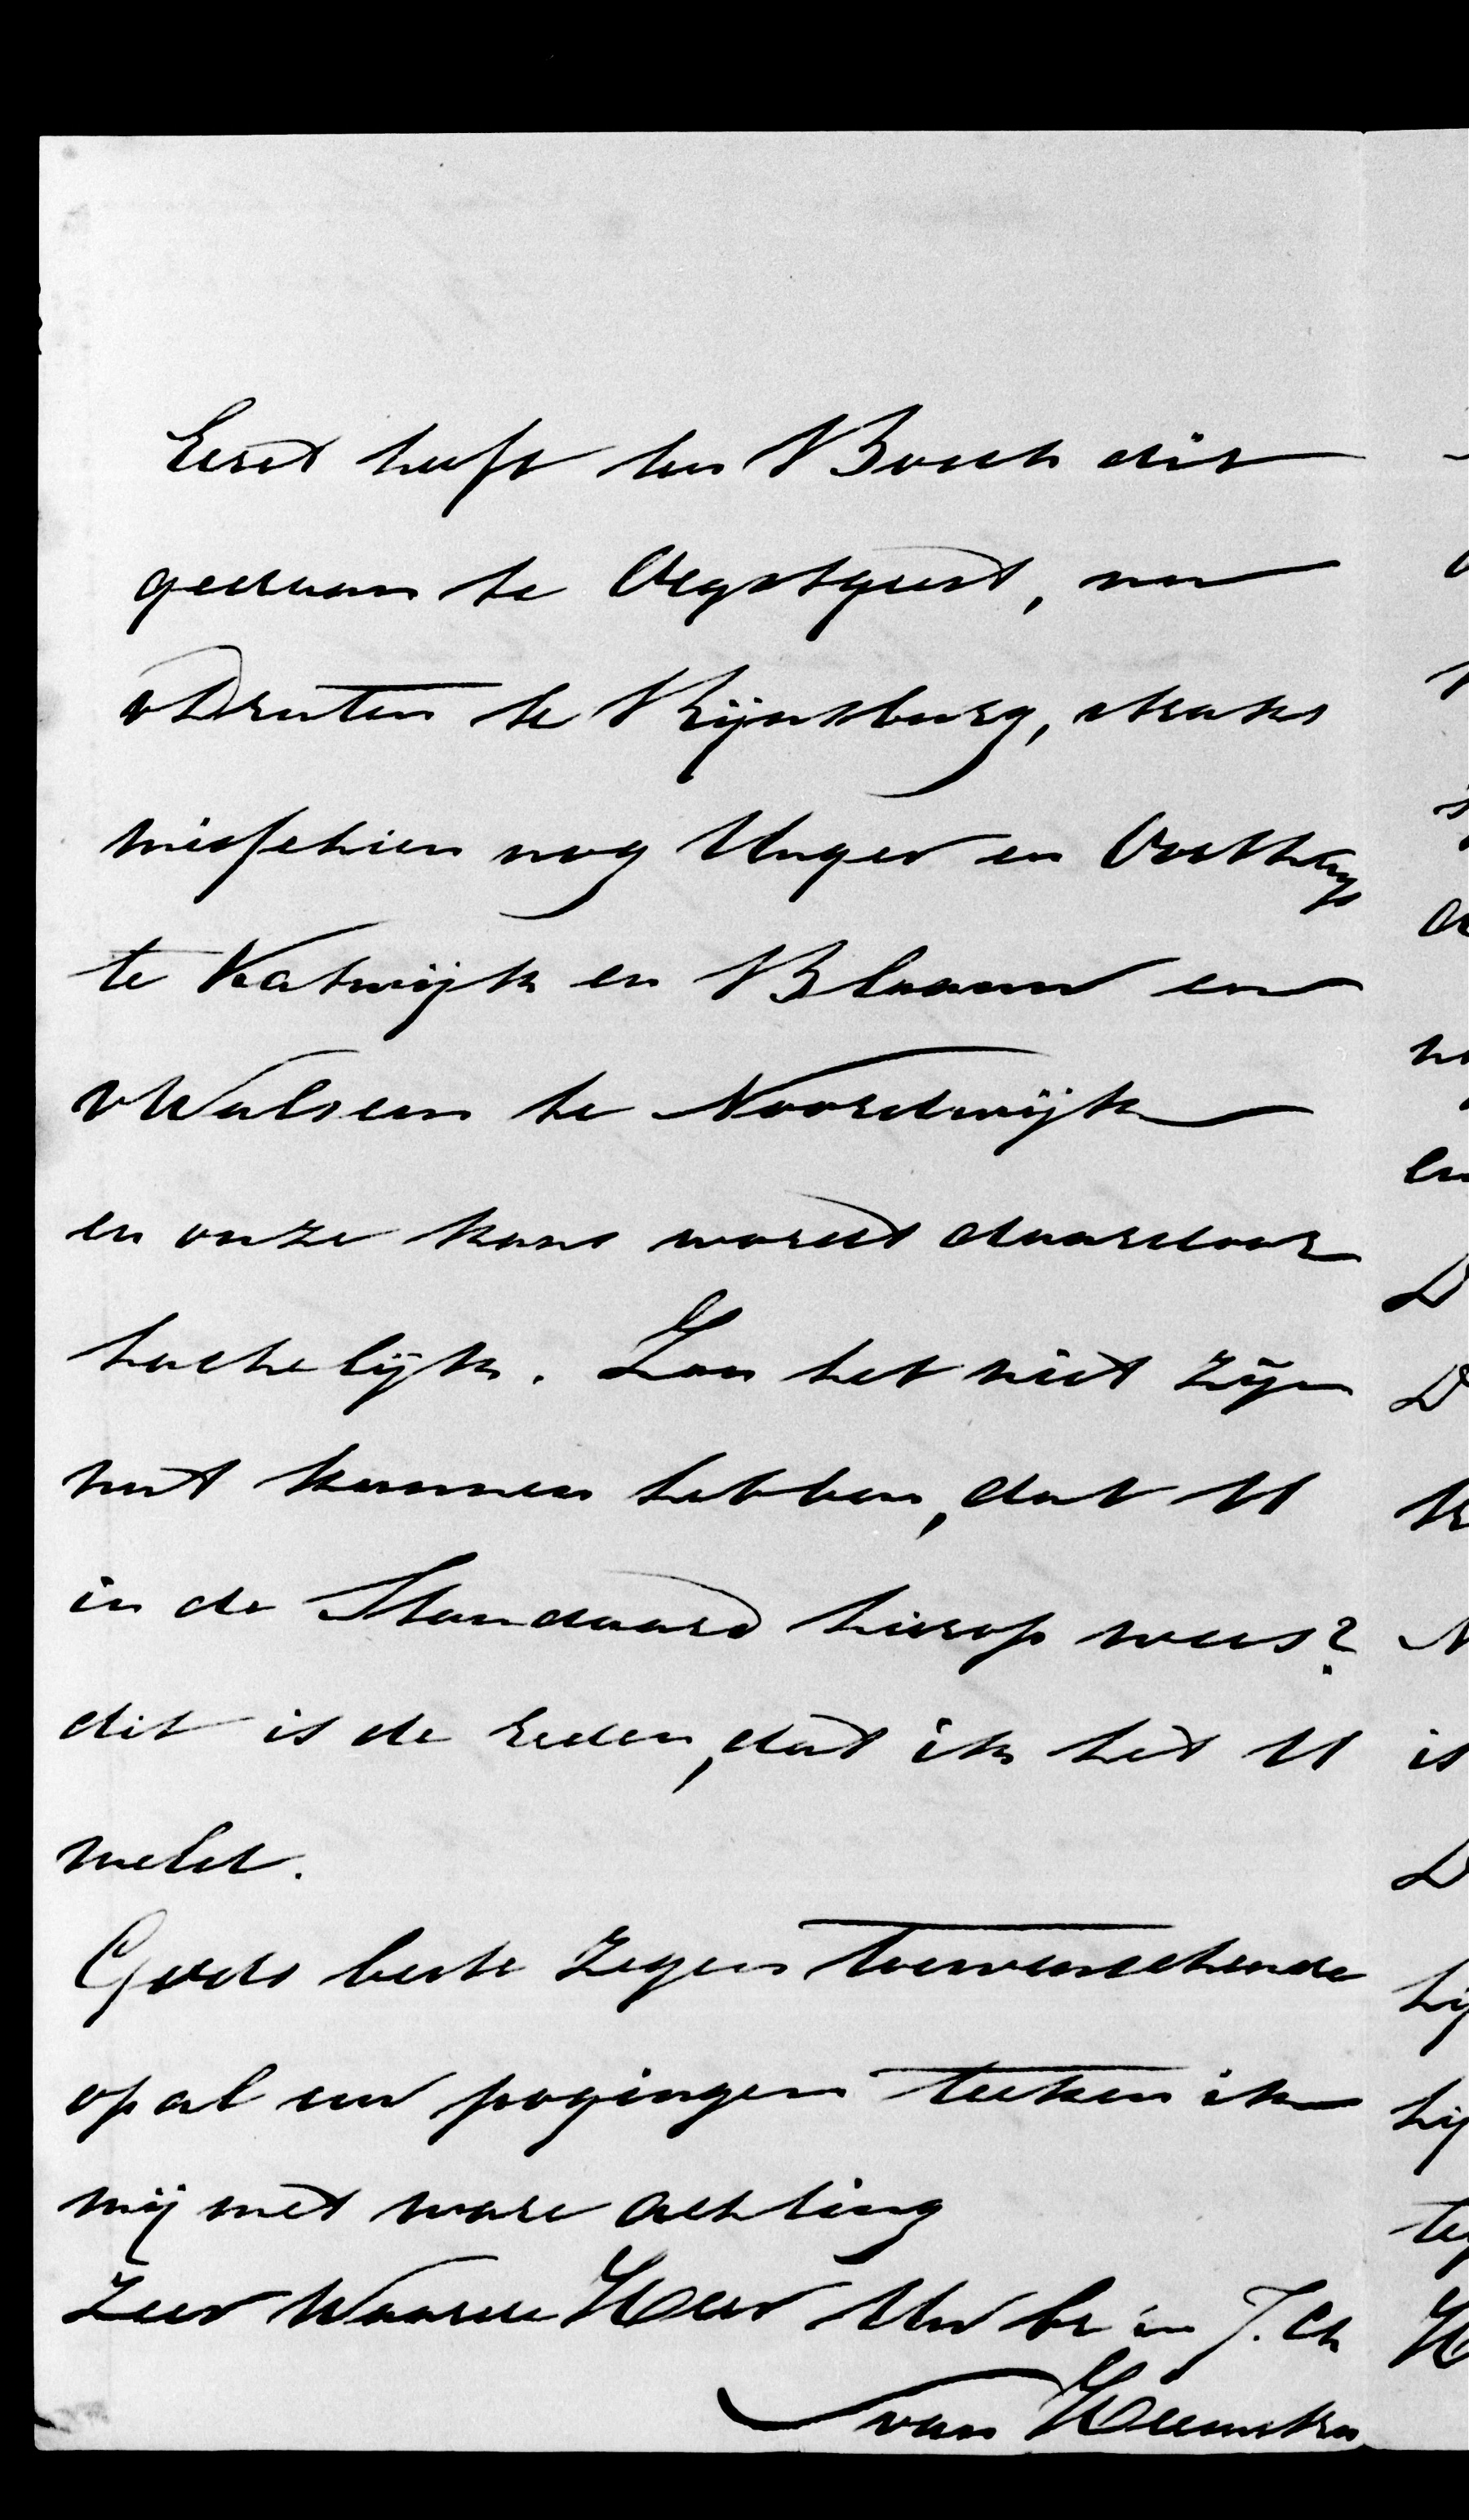 Eerst heeft ten Bosch dit
gedaan te Oegstgeest, nu
v Druten te Rijnsburg, straks
misschien nog Unger en
te Katwijk en Blaauw en
v Walsem te Noordwijk
en onze kans wordt daardoor
hachelijk. Zou het niet zijn
nut kunnen hebben, dat U
in de Standaard hierop wees?
dit is de reden, dat ik het U
meld.
Gods beste zegen toewenschende
op al uw pogingen teeken ik
mij met ware achting
Zeer Waarde Heer Uw br in J. Ch
van Heemstra